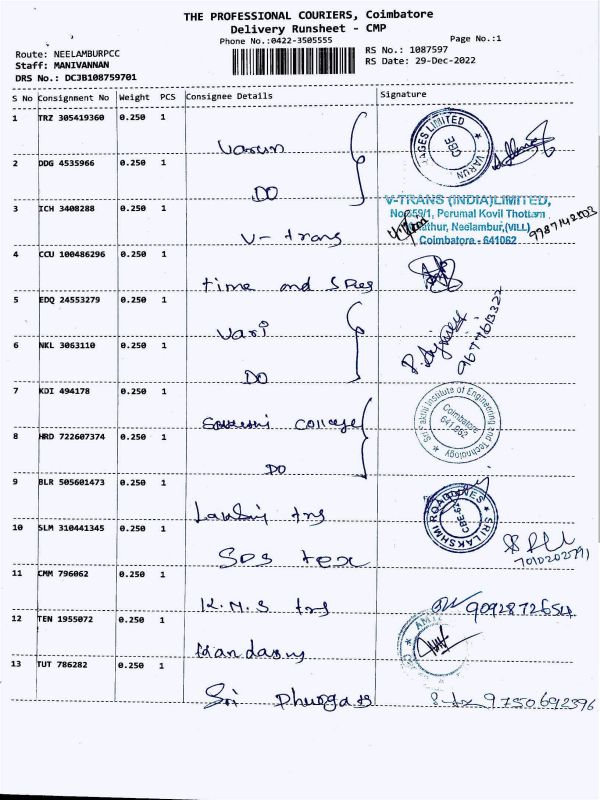 THE PROFESSIONAL COURIERS, Coimbatore
Delivery Runsheet - CMP
Phone No.:0422-3505555
Page No.:1
Route: NEELAMBURPCC
RS No.: 1087597
Staff: MANIVANNAN
RS Date: 29-Dec-2022
DRS No.: DCJB108759701
S No Consignment No Weight PCS Consignee Details Signature
1 TRZ 305419360 0.250 1 Varun
LIMITED VARUN CBE
2 DDG 4535966 0.250 1 DO
3 ICH 3408288 0.250 1 V- trans
V-TRANS (INDIA) LIMITED,
No. 559/1, Perumal Kovil Thottam
Neelambur,(VILL)
Coimbatore - 641062
4 CCU 100486296 0.250 1 time and
5 EDQ 24553279 0.250 1 Vari
9677613322
6 NKL 3063110 0.250 1 DO
7 KDI 494178 0.250 1 College
Sri Sakthi Institute of Engineering and Technology
Coimbatore
641 062
8 HRD 722607374 0.250 1 DO
9 BLR 505601473 0.250 1
SRI LAKSHMI ROADLINES
10 SLM 310441345 0.250 1 SPS tex
11 CMM 796062 0.250 1 K.M.S
9092872654
12 TEN 1955072 0.250 1
13 TUT 786282 0.250 1 Sri
9750692396